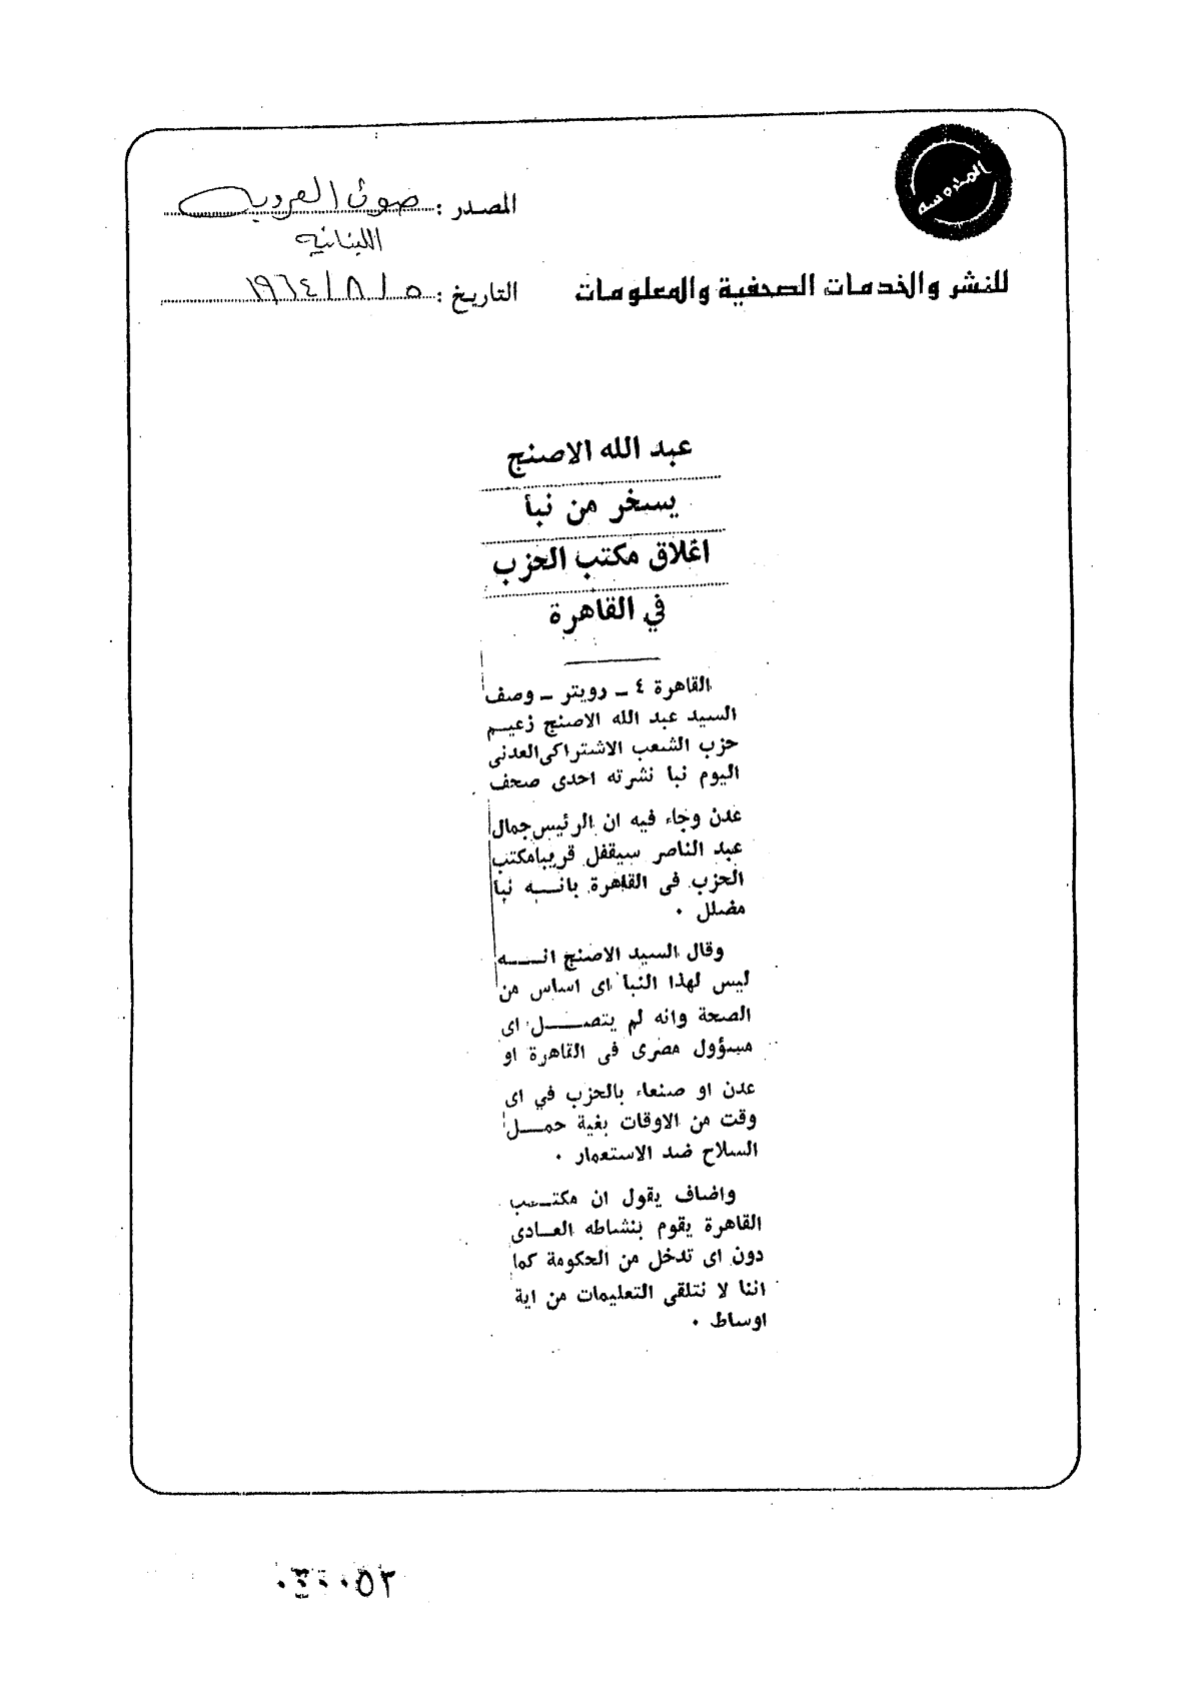 المحروسة
المصدر : صوت العروبة
اللبنانية
للنشر والخدمات الصحفية والمعلومات
التاريخ : ٥ / ٨ / ١٩٦٤
عبد الله الاصنج
يسخر من نبا
اغلاق مكتب الحزب
في القاهرة
القاهرة ٤ ــ رويتر ــ وصف
السيد عبد الله الاصنج زعيم
حزب الشعب الاشتراكى العدنى
اليوم نبا نشرته احدى صحف
عدن وجاء فيه ان الرئيس جمال
عبد الناصر سيقفل قريبا مكتب
الحزب فى القاهرة بانه نبا
مضلل ٠
وقال السيد الاصنج انه
ليس لهذا النبا اى اساس من
الصحة وانه لم يتصل اى
مسؤول مصرى فى القاهرة او
عدن او صنعاء بالحزب في اى
وقت من الاوقات بغية حمل
السلاح ضد الاستعمار ٠
واضاف يقول ان مكتب
القاهرة يقوم بنشاطه العادى
دون اى تدخل من الحكومة كما
اننا لا نتلقى التعليمات من اية
اوساط ٠